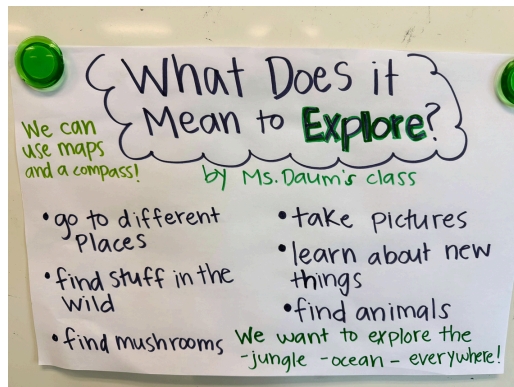 What Does it
Mean to Explore?
We can
use maps
and a compass!
by Ms. Daum's class
•go to different
Places
•find stuff in the
wild
•find mushrooms
•take pictures
•learn about new
things
•find animals
We want to explore the
-jungle -ocean - everywhere!